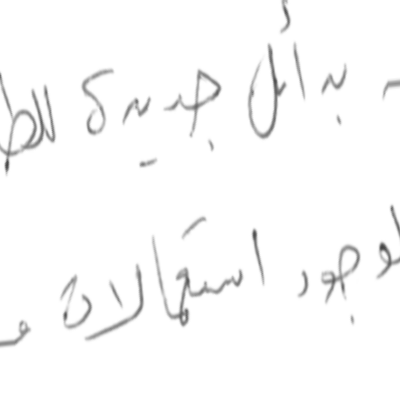 بدائل جديدة للط
لوجود استعمالات